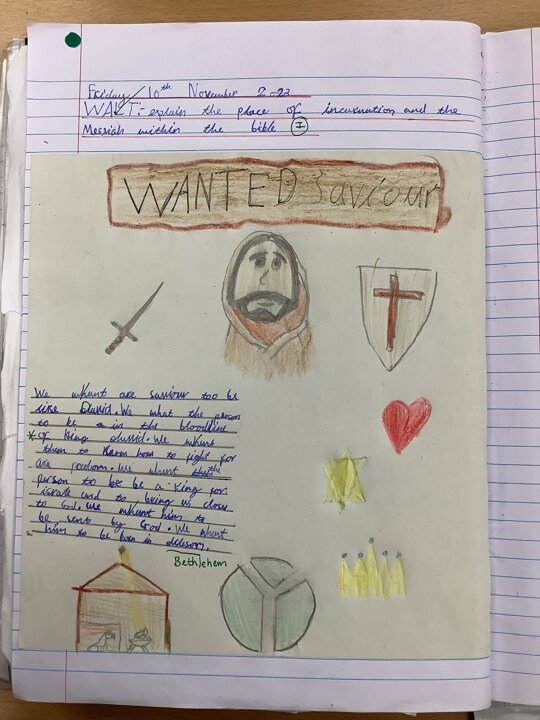 Friday 10th November 2023
WALT:- explain the place of incarnation and the
Messiah within the bible I
WANTED Saviour
We whunt are saviour too be
like Davvid. We what the person
to be a in the bloodline
of King davvid. We whunt
them to know how to fight for
are freedom. We whunt the
person to be be a King for
israle and to bring us closer
to God. We whunt him to
be sent by God. We whunt
him to be born in
Bethlehem